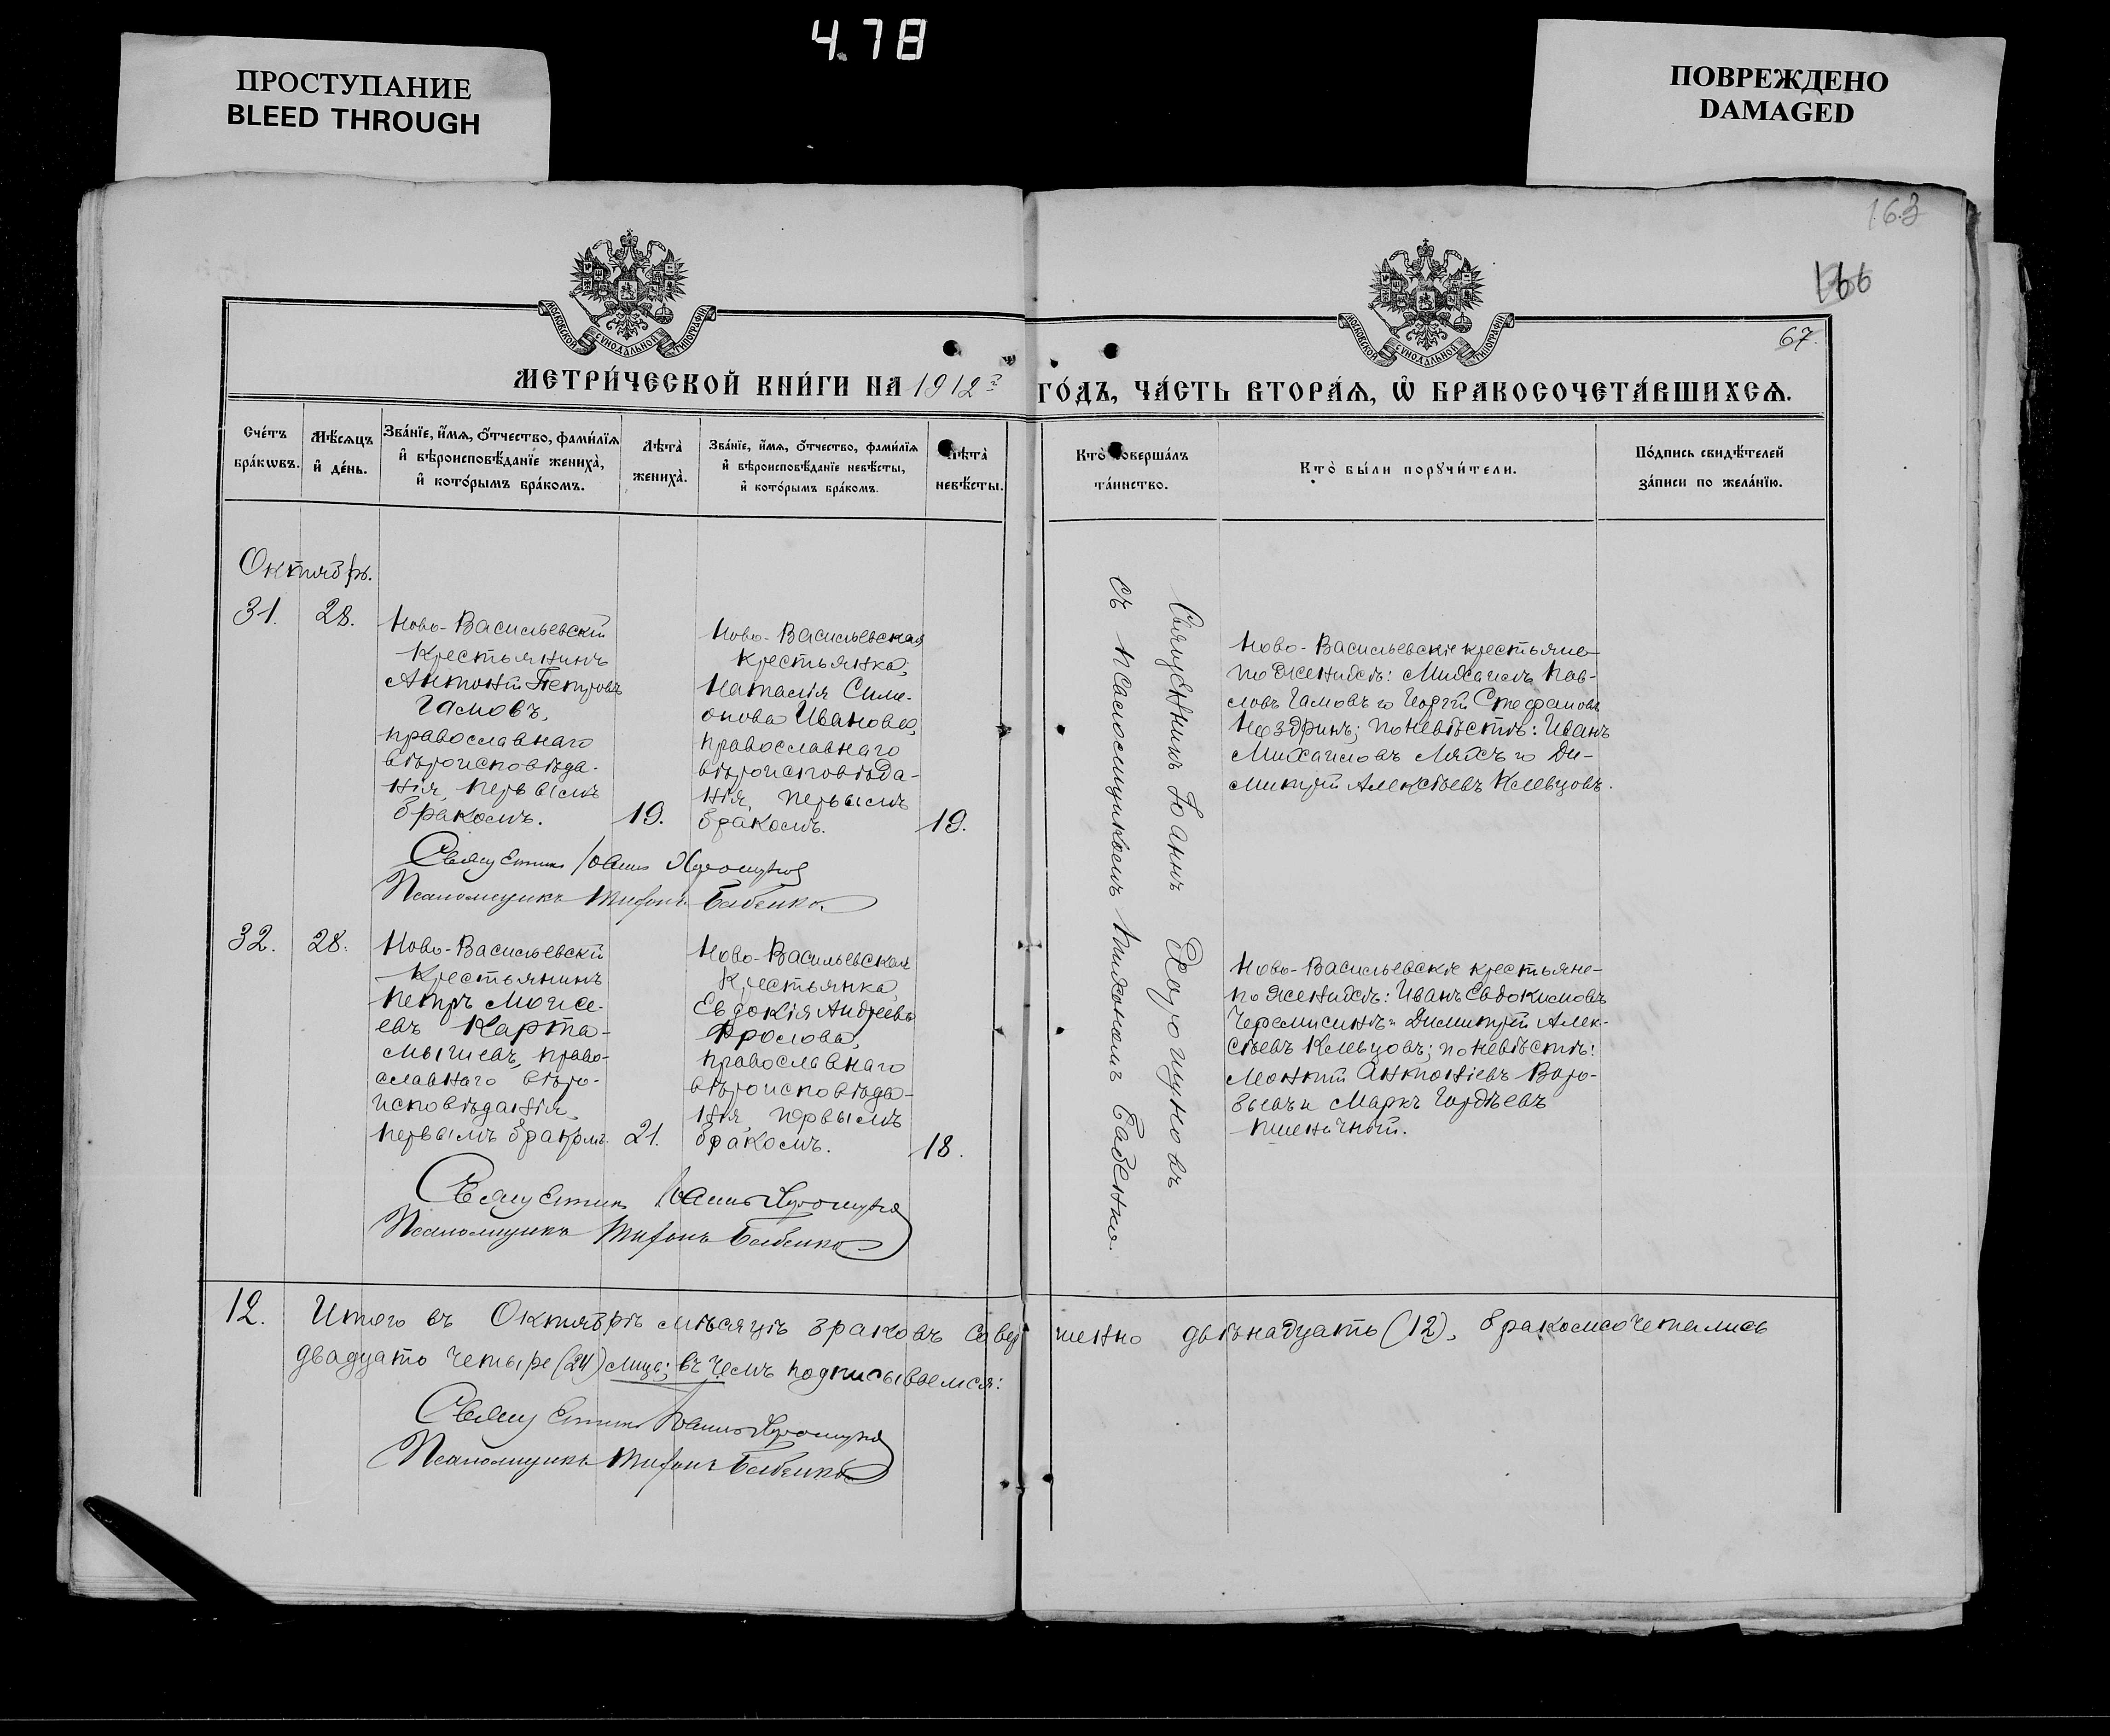 4.78
ПРОСТУПАНИЕ
BLEED THROUGH
ПОВРЕЖДЕНО
DAMAGED
163
166
67.
МОСКОВСКОЙ СѴНОДАЛЬНОЙ ТИПОГРАФІИ
МОСКОВСКОЙ СѴНОДАЛЬНОЙ ТИПОГРАФІИ
МЕТРИ́ЧЕСКОЙ КНИ́ГИ НА 1912 ГО́ДЪ, ЧА́СТЬ ВТОРА́Ѧ, Ѡ҆ БРАКОСОЧЕТА́ВШИХСѦ.
Сче́тъ бра́кѡвъ.
Мѣ́сѧцъ и҆ де́нь.
Зва́нїе, и҆́мѧ, о҆́тчество, фами́лїѧ
и҆ вѣроисповѣ́данїе жениха̀,
и҆ кото́рымъ бра́комъ.
Лѣта̀
жениха̀.
Зва́нїе, и҆́мѧ, о҆́тчество, фами́лїѧ
и҆ вѣроисповѣ́данїе невѣ́сты,
и҆ кото́рымъ бра́комъ.
Лѣта̀
невѣ́сты.
Кто̀ соверша́лъ
та́инство.
Кто̀ бы́ли порꙋчи́тели.
По́дпись свидѣ́телей
за́писи по жела́нїю.
Октябрь.
31.
28.
Ново-Васильевскій
крестьянинъ
Антоній Петровъ
Гамовъ,
православнаго
вѣроисповѣда-
нія, первымъ
бракомъ.
19.
Ново-Васильевская
крестьянка,
Наталія Симе-
онова Иванова,
православнаго
вѣроисповѣда-
нія, первымъ
бракомъ.
19.
Священникъ Іоаннъ Хорошуновъ
съ псаломщикомъ Тихономъ Бабенко.
Ново-Васильевскіе крестьяне
по женихѣ: Михаилъ Пав-
ловъ Гамовъ и Георгій Стефановъ
Ноздринъ; по невѣстѣ: Иванъ
Михаиловъ Ляхъ и Ди-
митрій Алексѣевъ Клевцовъ.
Священникъ Іоаннъ Хорошуновъ
Псаломщикъ Тихонъ Бабенко
32.
28.
Ново-Васильевскій
крестьянинъ
Петръ Моисе-
евъ Карта-
мышевъ, право-
славнаго вѣро-
исповѣданія,
первымъ бракомъ.
21.
Ново-Васильевская
крестьянка,
Евдокія Андреева
Фролова,
православнаго
вѣроисповѣда-
нія, первымъ
бракомъ.
18.
Ново-Васильевскіе крестьяне-
по женихѣ: Иванъ Евдокимовъ
Черемисинъ и Димитрій Алек-
сѣевъ Клевцовъ; по невѣстѣ:
Антоніевъ
и Маркъ Гордѣевъ
Пшеничный.
Священникъ Іоаннъ Хорошуновъ
Псаломщикъ Тихонъ Бабенко
12.
Итого въ Октябрѣ мѣсяцѣ браковъ совершенно двѣнадцать (12), бракомсочетались
двадцать четыре (24) лица; въ чемъ подписываемся:
Священникъ Іоаннъ Хорошуновъ
Псаломщикъ Тихонъ Бабенко